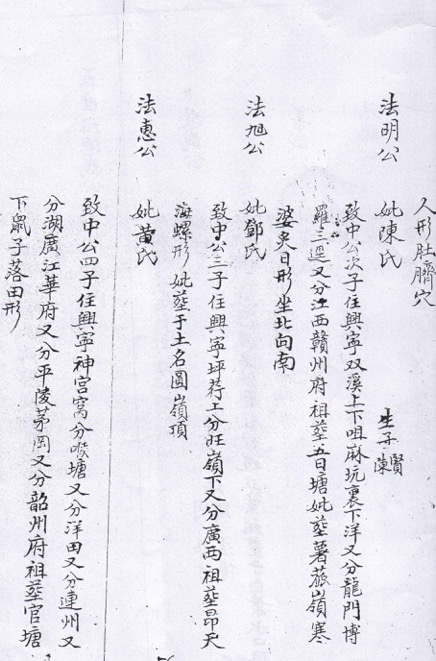 人形肚臍穴
法明公 妣陳氏 生子 賢 陳
致中公次子住興寧双溪上下咀麻坑裏下洋又分龍門博
羅三逕又分江西贛州府祖塟五日塘妣塟薯莨嶺寒
婆炙日形坐北向南
法旭公 妣鄧氏
致中公三子住興寧坪荇工分旺嶺下又分廣西祖塟昂天
海螺形 妣塟于土名圓嶺頂
法惠公 妣黄氏
致中公四子住興寧神宫窩分喉塘又分洋田又分連州又
分湖廣江華府又分平陵茅岡又分韶州府祖塟官塘
下鼠子落田形